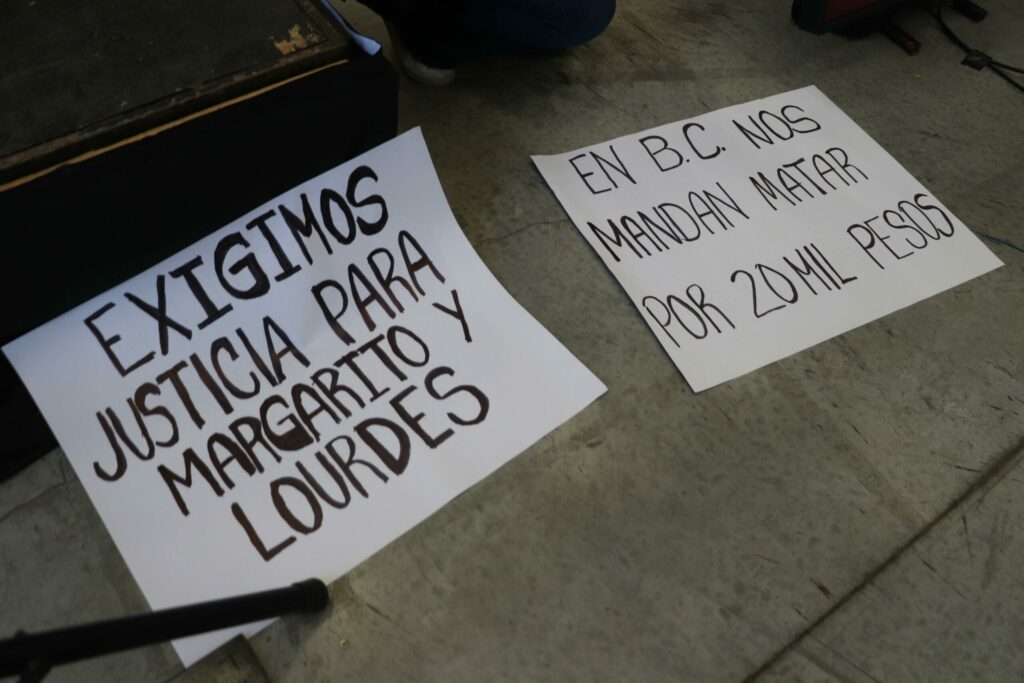 EXIGIMOS
JUSTICIA PARA
MARGARITO Y
LOURDES
EN B.C. NOS
MANDAN MATAR
POR 20 MIL PESOS